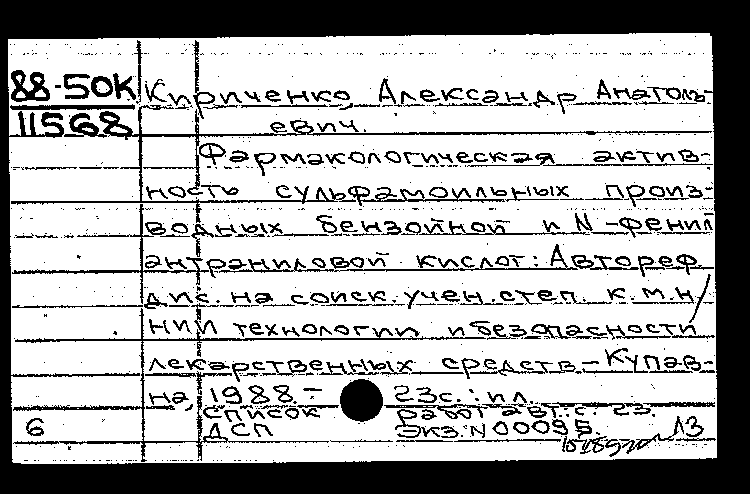 88-50К Кириченко, Александр Анатоль-
11568 евич.
Фармакологическая актив-
ность сульфамоильных произ-
водных бензойной и N-фенил
антраниловой кислот: Автореф.
дис. на соиск. учен. степ. к.м.н/
НИИ технологии и безопасности
лекарственных средств.-Купав-
на, 1988.- 23с.: ил.
список работ авт.: с. 23.
6 ДСП экз. N 00095. 13